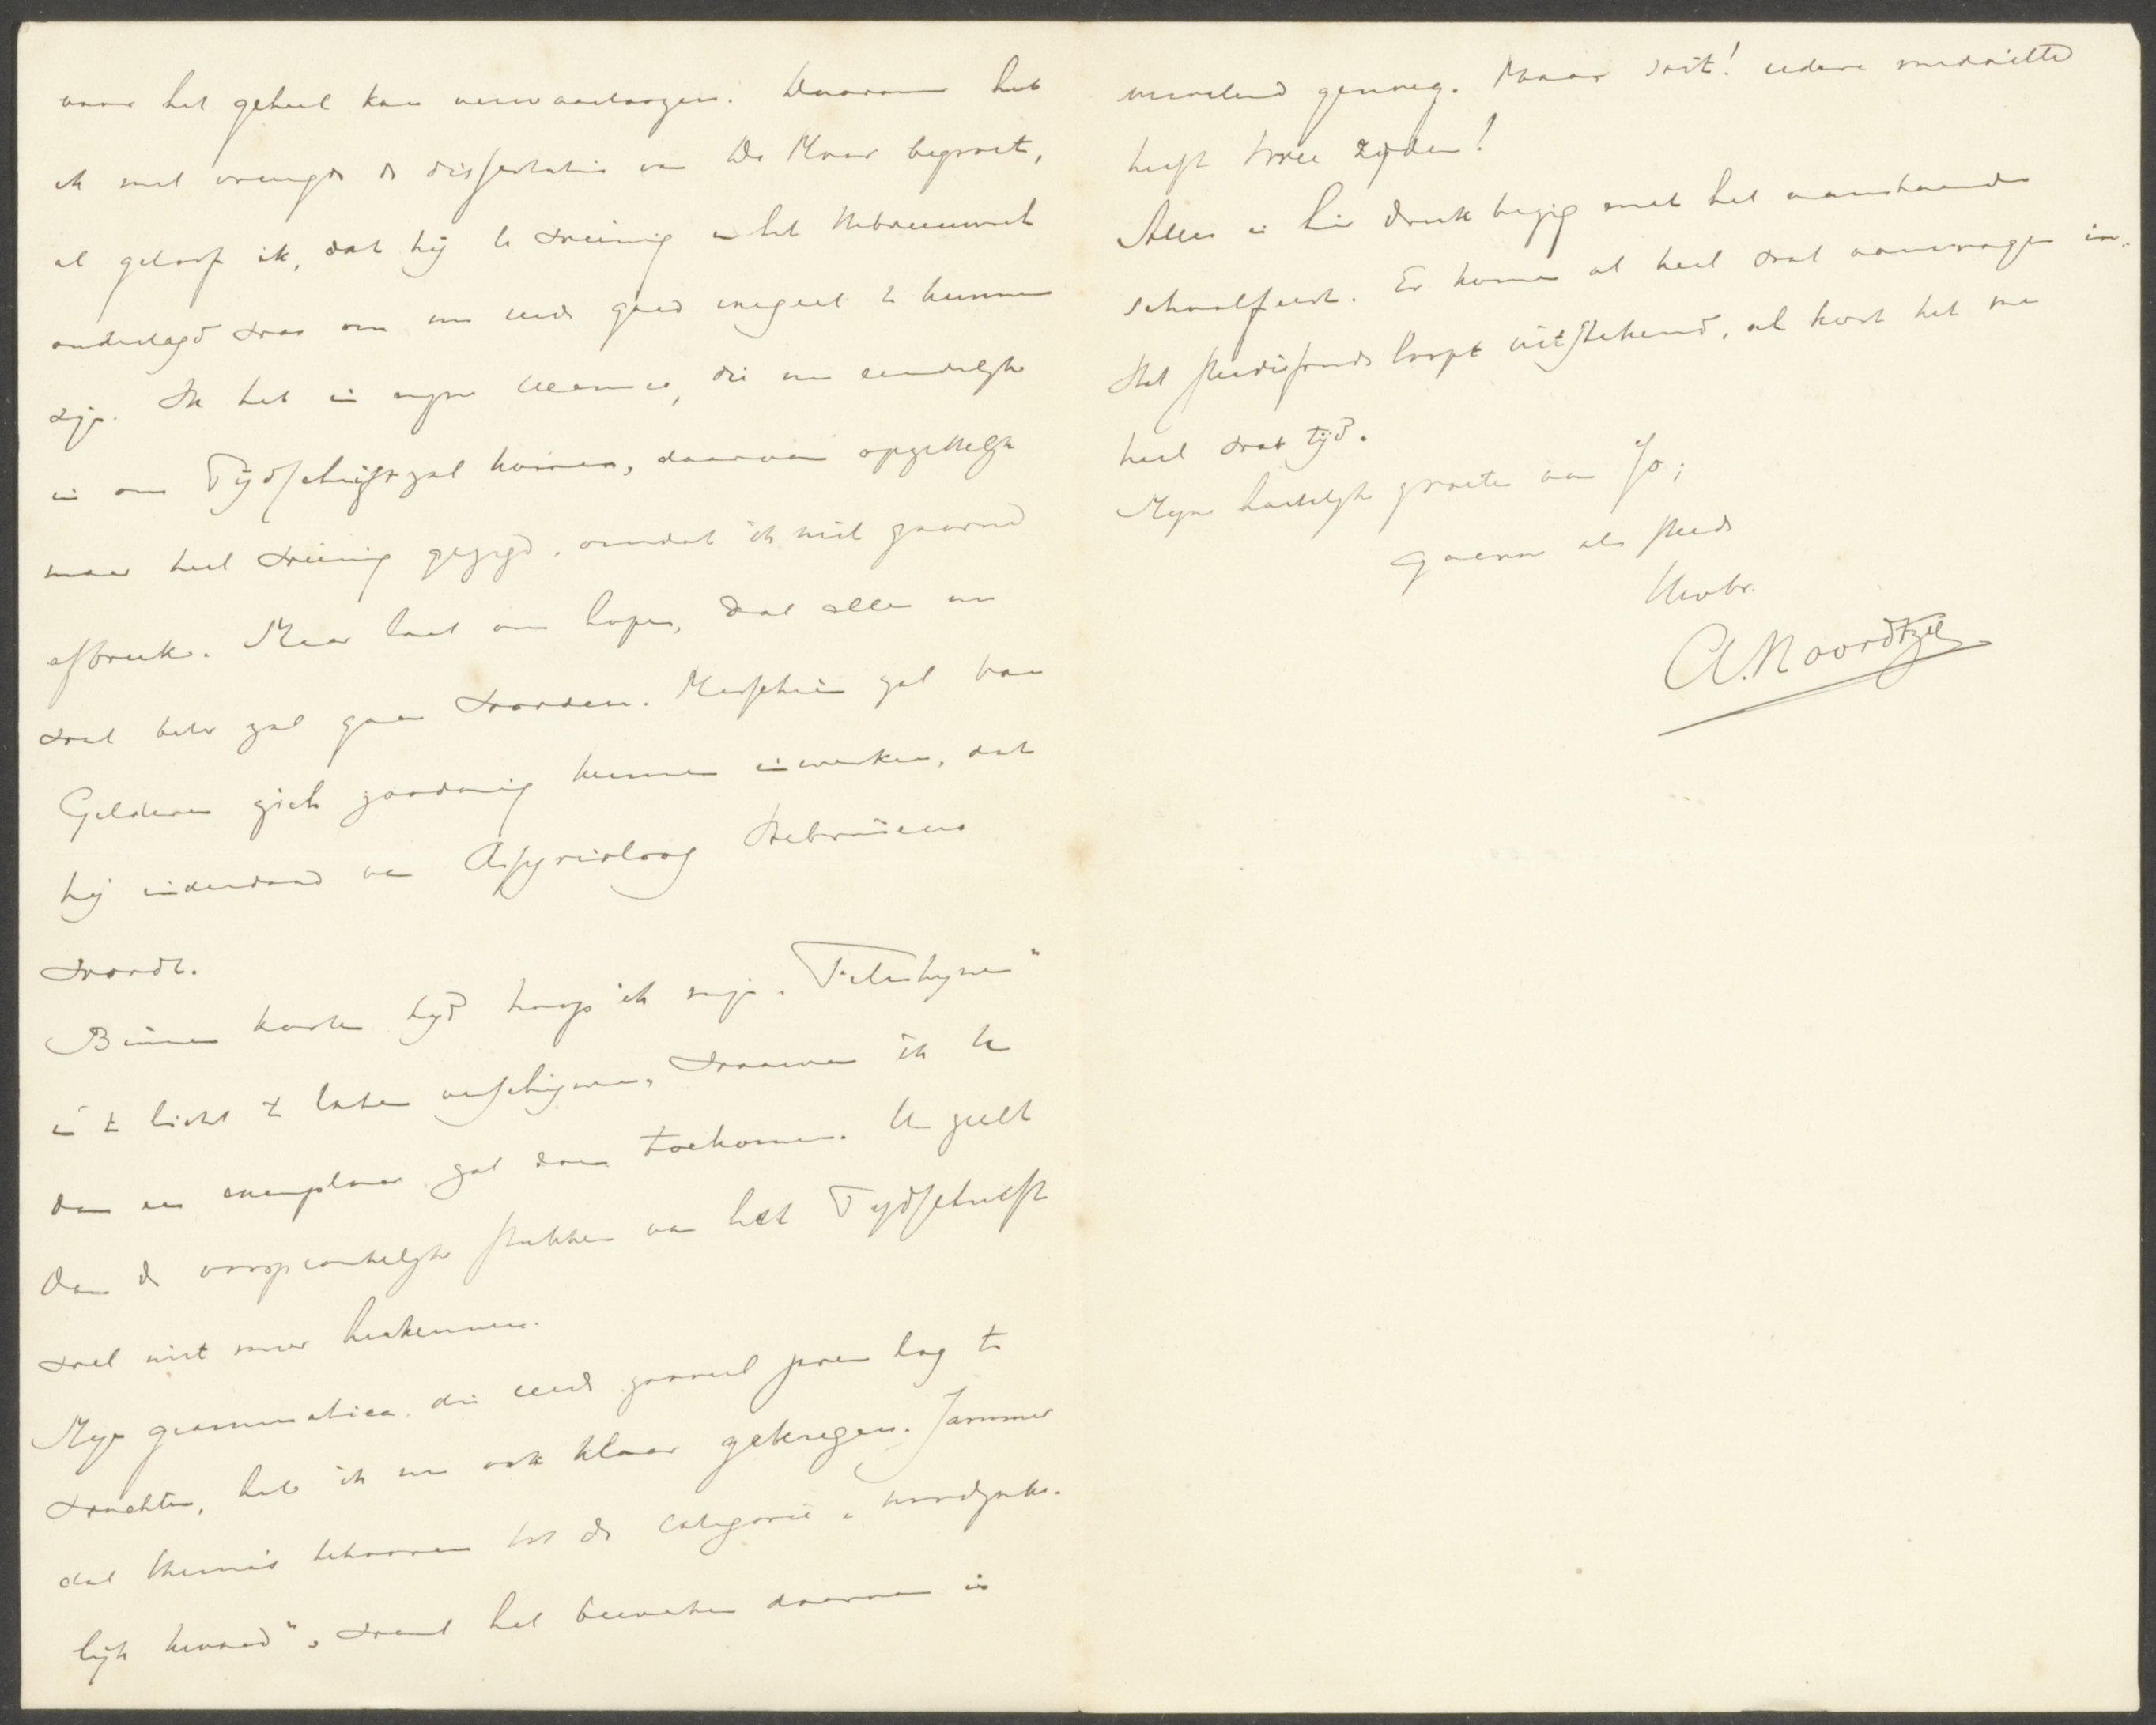 voor het geheel kan verwaarloozen. Daarom heb
ik met vreugde de dissertatie van De Moor begroet,
al geloof ik, dat hij te weinig in het Hebreeuwsch
onderlegd was om een goed te kunnen
zijn. Ik heb in mijn die nu eindelijk
in ons Tijdschrift zal komen, daarvan opzettelijk
maar heel weinig gezegd, omdat ik niet gaarne
afbreek. Maar laat ons hopen, dat alles nu
wat beter zal gaan worden. Misschien zal van
Gelderen zich zoodanig kunnen inwerken, dat
hij inderdaad van Assyrioloog Hebraïcus
wordt.
Binnen korten tijd hoop ik mijn „Filistijnen"
in 't licht te laten verschijnen, waarvan ik U
dan een exemplaar zal doen toekomen. U zult
dan de oorspronkelijke stukken van het Tijdschrift
wel niet meer herkennen.
Mijn grammatica, die reeds zooveel jaren lag te
wachten, heb ik nu ook klaar gekregen. Jammer
dat thema's behooren tot de categorie „noodzake-
lijk kwaad", want het bewerken daarvan is
vervelend genoeg. Maar soit! iedere medaille
heeft twee zijden!
Alles is hier druk bezig met het aanstaande
schoolfeest. Er komen al heel wat aanvragen in.
Het studiefonds loopt uitstekend, al kost het me
heel wat tijd.
Mijn hartelijke groeten aan Jo;
gaarne als steeds
Uw br.
A. Noordtzij